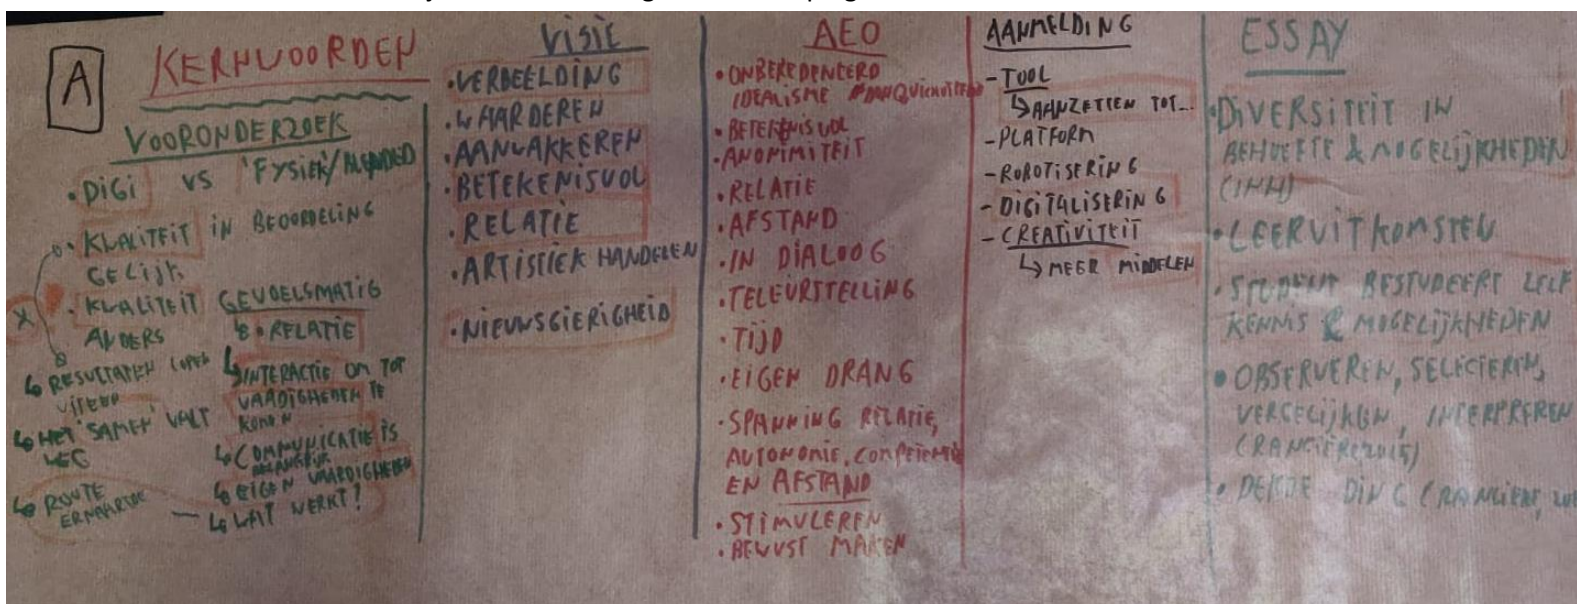 A
KERNWOORDEN
VOORONDERZOEK
• DIGI VS 'FYSIEK/
• KWALITEIT IN BEOORDELING
GELIJK
X
• KWALITEIT GEVOELSMATIG
ANDERS
↳ • RELATIE
↳ RESULTATEN LOPEN
UITEEN
↳ HET 'SAMEN' VALT
WEG
↳ ROUTE
ERNAARTOE
↳ INTERACTIE OM TOT
VAARDIGHEDEN TE
KOMEN
↳ COMMUNICATIE IS
BELANGRIJK
↳ EIGEN VAARDIGHEDEN
↳ WAT WERKT!
VISIE
• VERBEELDING
• WAARDEREN
• AANWAKKEREN
• BETEKENISVOL
• RELATIE
• ARTISTIEK HANDELEN
• NIEUWSGIERIGHEID
AEO
• ONBEREDENEERD
IDEALISME
• BETEKENISVOL
• ANONIMITEIT
• RELATIE
• AFSTAND
• IN DIALOOG
• TELEURSTELLING
• TIJD
• EIGEN DRANG
• SPANNING RELATIE,
AUTONOMIE, COMPETENTIE
EN AFSTAND
• STIMULEREN
• BEWUST MAKEN
AANMELDING
- TOOL
↳ AANZETTEN TOT...
- PLATFORM
- ROBOTISERING
- DIGITALISERING
- CREATIVITEIT
↳ MEER MIDDELEN
ESSAY
• DIVERSITEIT IN
BEHOEFTE & MOGELIJKHEDEN
• LEERUITKOMSTEN
• STUDENT BESTUDEERT ZELF
KENNIS & MOGELIJKHEDEN
• OBSERVEREN, SELECTEREN,
VERGELIJKEN, INTERPREREN
(RANCIÈRE 2015)
• DERDE DING (RANCIÈRE,